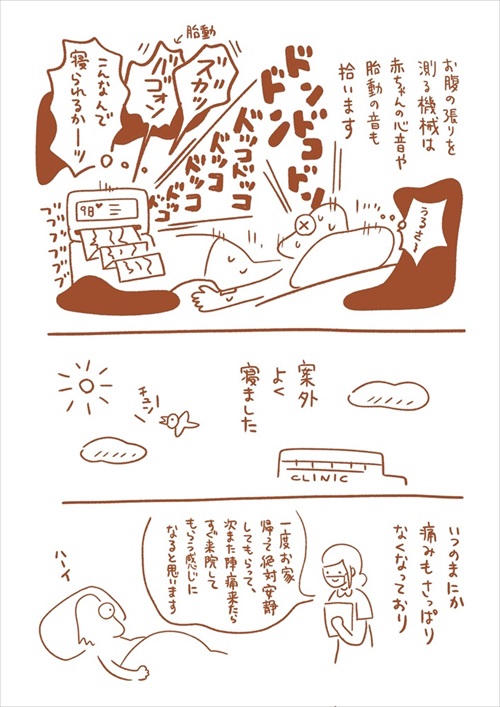 お腹の張りを
測る機械は
赤ちゃんの心音や
胎動の音も
拾います
うるさ〜
ドンドコドン
ドンドン
ドッコドッコ
ドッコ
ドッコ
ドッコ
胎動
ズカッ
バゴォン
こんなんで
寝られるかーッ
98
ブブブブブブ
案外
よく
寝ました
チュン
CLINIC
いつのまにか
痛みもさっぱり
なくなっており
一度お家
帰って絶対安静
してもらって、
次また陣痛来たら
すぐ来院して
もらう感じに
なると思います
ハーイ